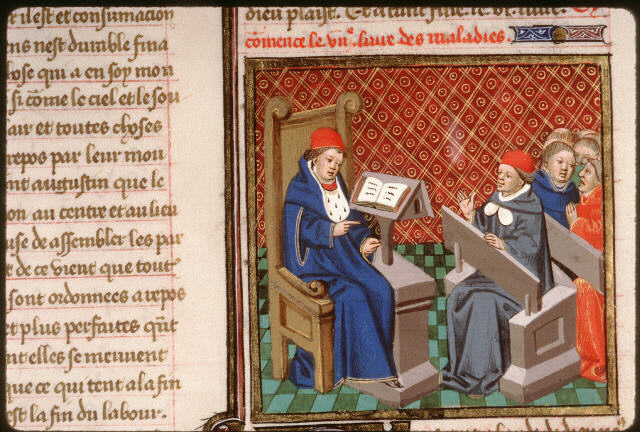 il est et consumacion
ens nest durable fina
chose qui a en soy mou
si come le ciel et le sou
air et toutes choses
repos par leur mou
nt augustin que le
on au centre et au lieu
use de assembler les par
de ce vient que tout
sont ordonnees a repos
et plus parfaites qũt
nt elles se meuvent
que ce qui tent a la fin
est la fin du labour.
dieu plaist. Et a tant fine le vi. livre.
Cōmence le viiᵉ. livre des maladies.